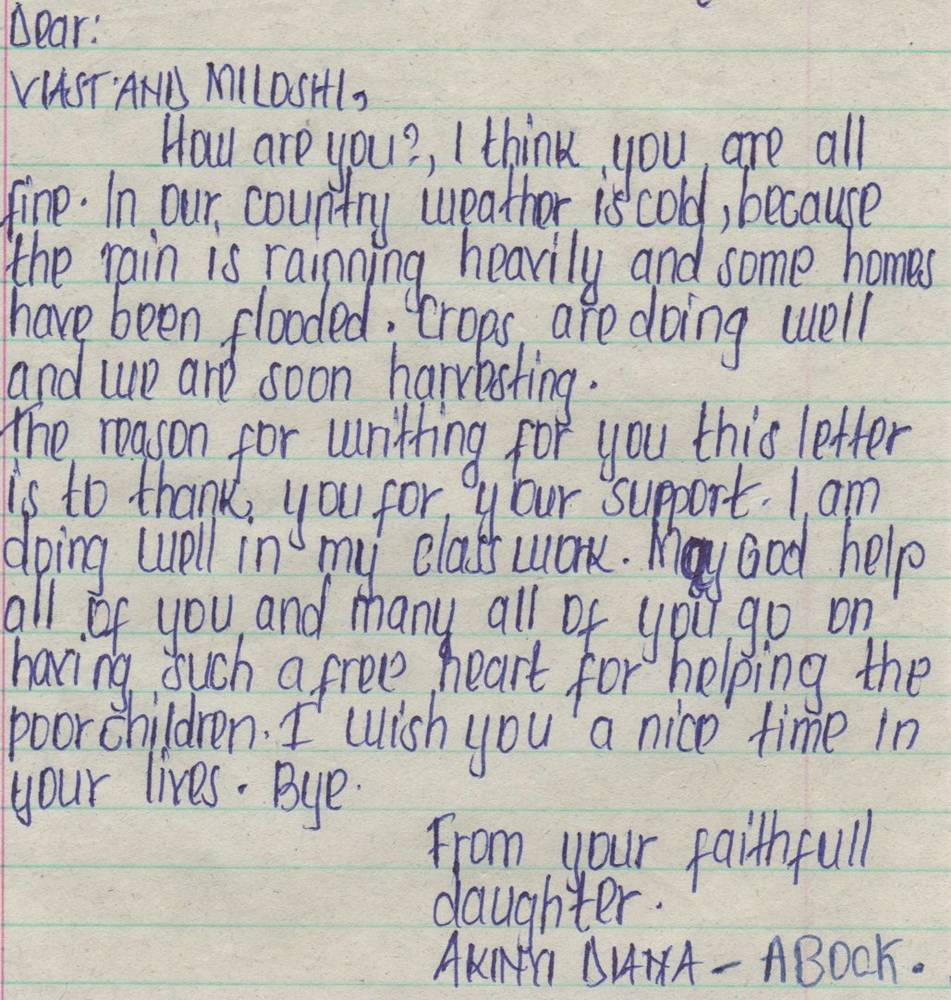 Dear:
VLAST AND MILOSHI,
How are you?, I think you are all
fine. In our country weather is cold, because
the rain is rainning heavily and some homes
have been flooded. Crops are doing well
and we are soon harvesting.
The reason for writting for you this letter
is to thank you for your support. I am
doing well in my class work. May God help
all of you and many all of you go on
having such a free heart for helping the
poor children. I wish you a nice time in
your lives. Bye.
From your faithfull
daughter.
AKINYI DIANA - ABOCK.